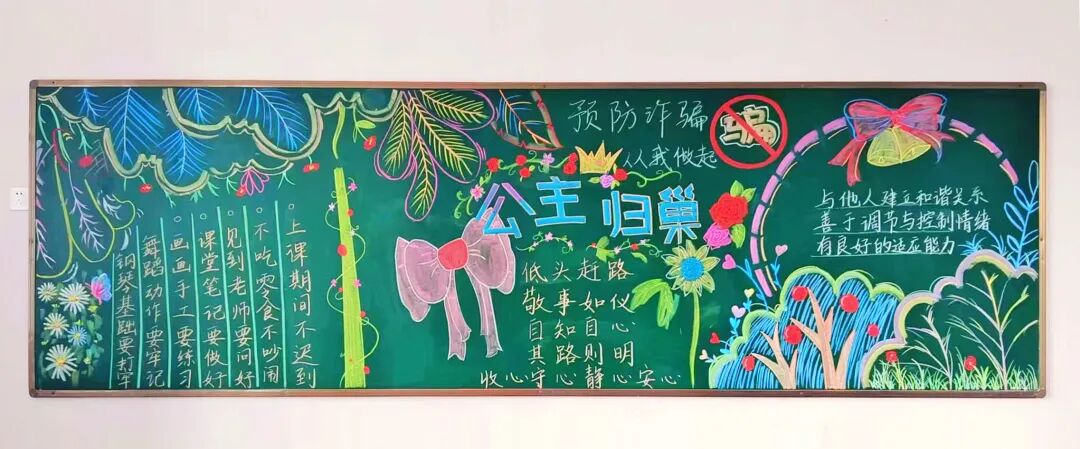 上课期间不迟到
不吃零食不吵闹
见到老师要问好
课堂笔记要做好
画画手工要练习
舞蹈动作要牢记
钢琴基础要打牢
预防诈骗
骗
从我做起
公主归巢
低头赶路
敬事如仪
自知自心
其路则明
收心守心静心安心
与他人建立和谐关系
善于调节与控制情绪
有良好的适应能力